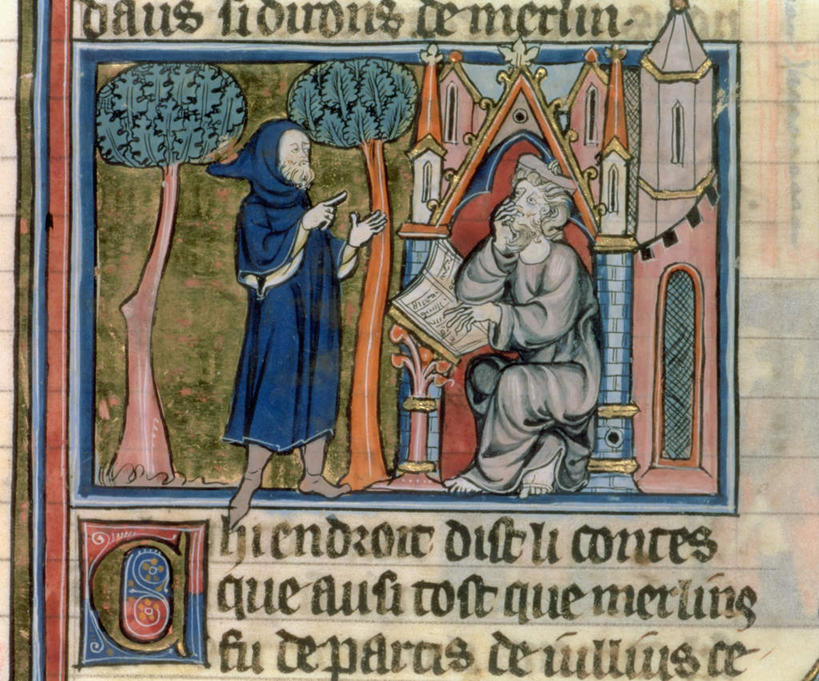 daus si dirons de merlin.
Chi endroit dist li contes
que ausi tost que merlins
fu departis de iullius ce